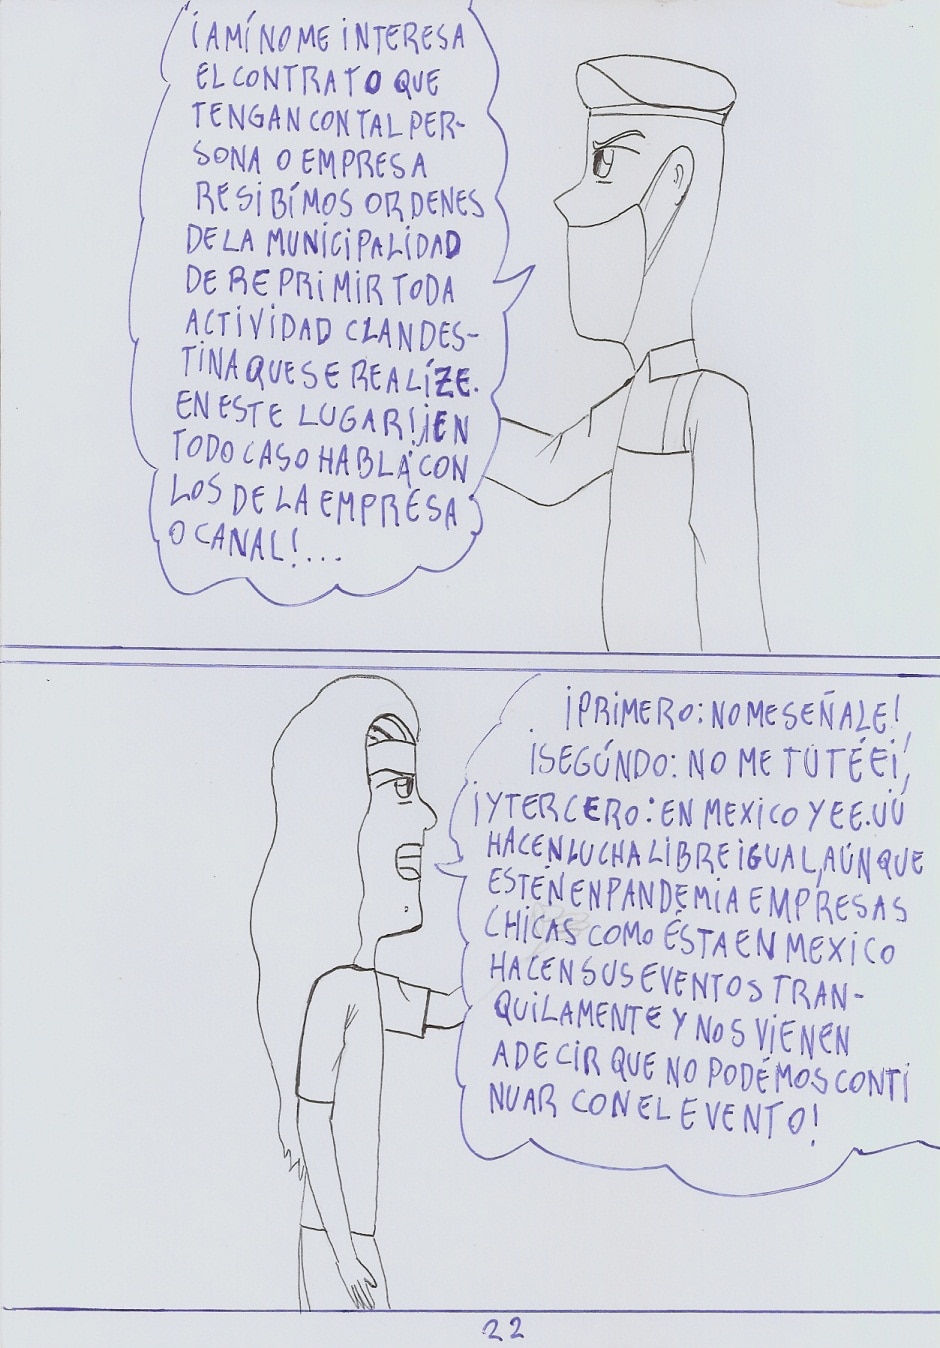 ¡A MÍ NO ME INTERESA
EL CONTRATO QUE
TENGAN CON TAL PER-
SONA O EMPRESA
RESIBÍMOS ORDENES
DE LA MUNICIPALIDAD
DE REPRIMIR TODA
ACTIVIDAD CLANDES-
TINA QUE SE REALÍZE.
EN ESTE LUGAR! ¡EN
TODO CASO HABLÁ CON
LOS DE LA EMPRESA
O CANAL!...
¡PRIMERO: NO ME SEÑALE!
¡SEGÚNDO: NO ME TUTÉÉ!
¡Y TERCERO: EN MEXICO Y EE.UÚ
HACEN LUCHA LIBRE IGUAL, AÚNQUE
ESTÉN EN PANDEMIA EMPRESAS
CHICAS COMO ÉSTA EN MEXICO
HACEN SUS EVENTOS TRAN-
QUILAMENTE Y NOS VIENEN
A DECIR QUE NO PODÉMOS CONTI
NUAR CON EL EVENTO!
22